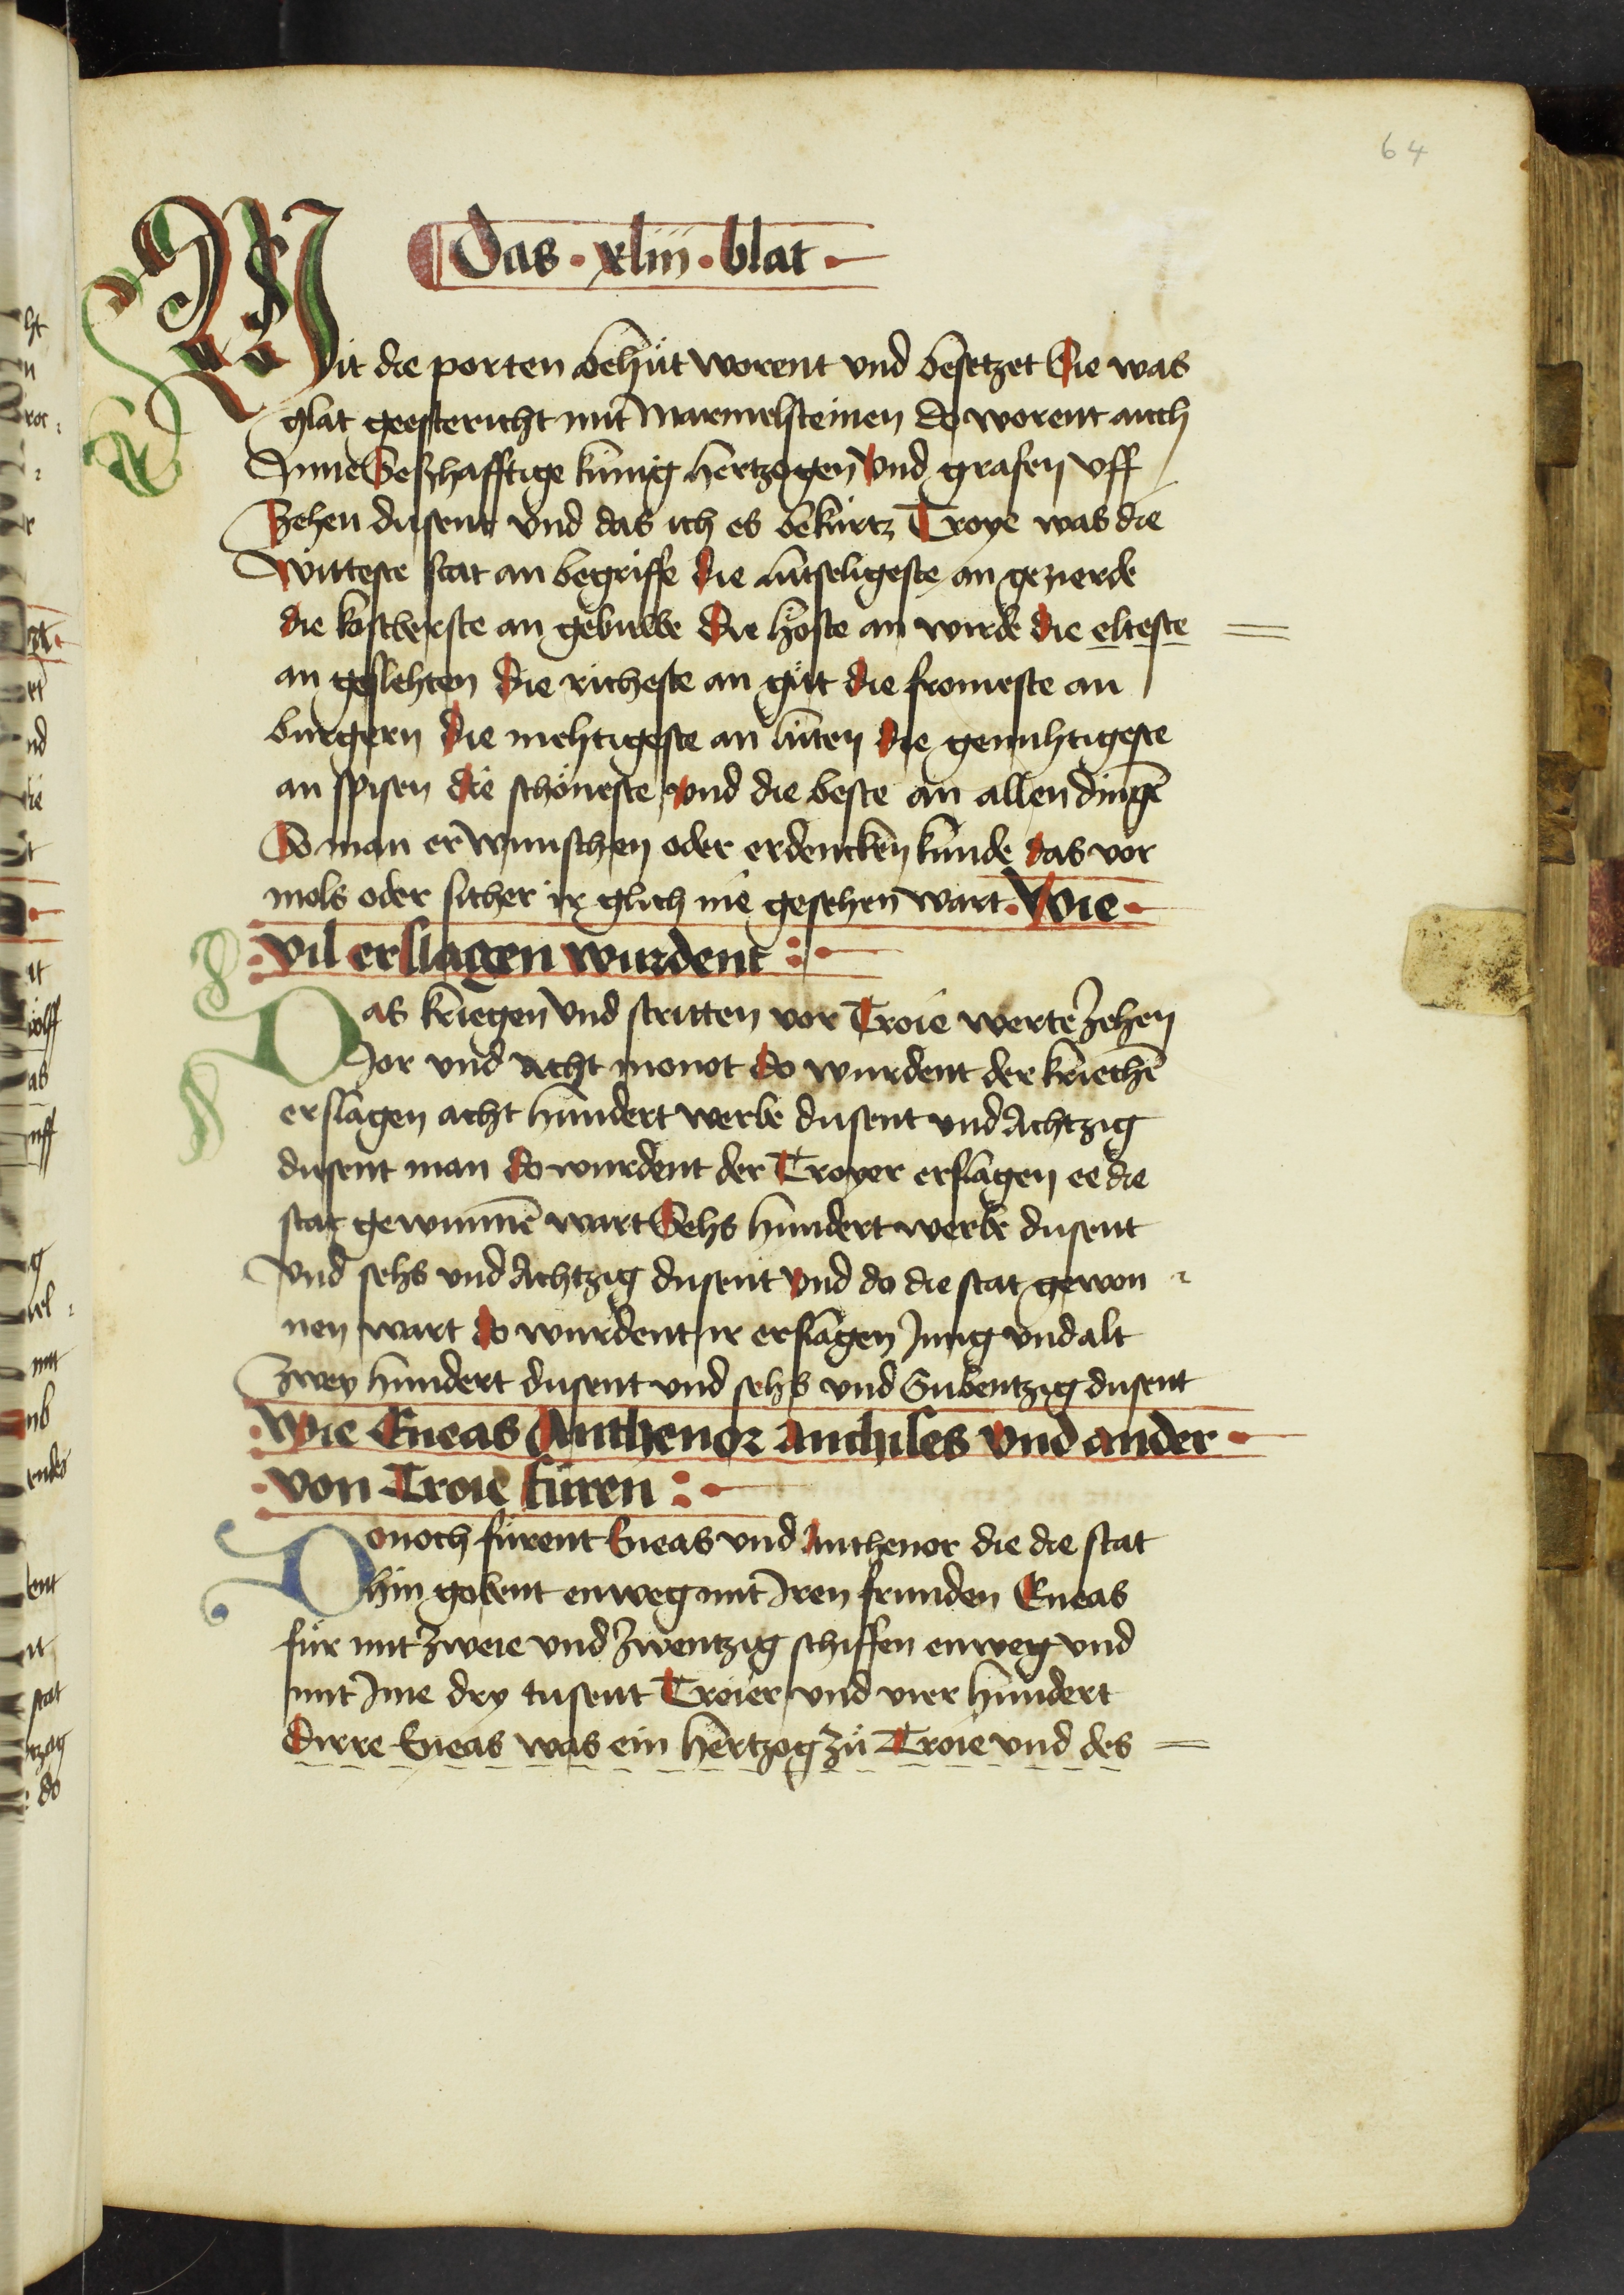 64
Das · xliii · blat ·
Mit die porten behüt worent vnd besetzet Sie was
glat geestericht mit Marmelsteinen do worent auch
Inne Seßhafftige künig hertzogen Vnd grafen vff
Zehen dusent vnd das ich es bekürtz Troye was die
Witteste stat an begriffe die lutseligeste an gezierde
die kostberste an gebuwe Die höste an wirde die elteste
an geslehten Die richeste an güt die fromeste an
burgern Die mehtigeste an lüten die genuhtigeste
an spisen die schöneste vnd die beste an allen dingē
So man erwunschen oder erdencken kunde das vor
mols oder sicher ir glich nie gesehen wart · Wie ·
vil erslagen wurdent :·
Das kriegen vnd stritten vor Troie werte Zehen
Jor vnd Acht monot do wurdent der kriechē
erslagen acht hundert werbe dusent vnd Achtzig
dusent man do wurdent der Troyer erslagen ee die
stat gewunnē wart Sehs hundert werbe dusent
Vnd sehs vnd Achtzig dusent vnd do die stat gewon
nen wart do wurdent ir erslagen Jung vnd alt
Zwey hundert dusent vnd sehs vnd Subentzig dusent
Wie Eneas Anthenor Anchises vnd ander ·
von Troie füren :·
Donoch fürent Eneas vnd Anthenor die die stat
hin gobent enweg mit Iren frunden Eneas
für mit Zweie vnd Zwentzig schiffen enweg vnd
mit Ime dry tusent Troier vnd vier hundert
Dirre Eneas was ein hertzog Zü Troie vnd des